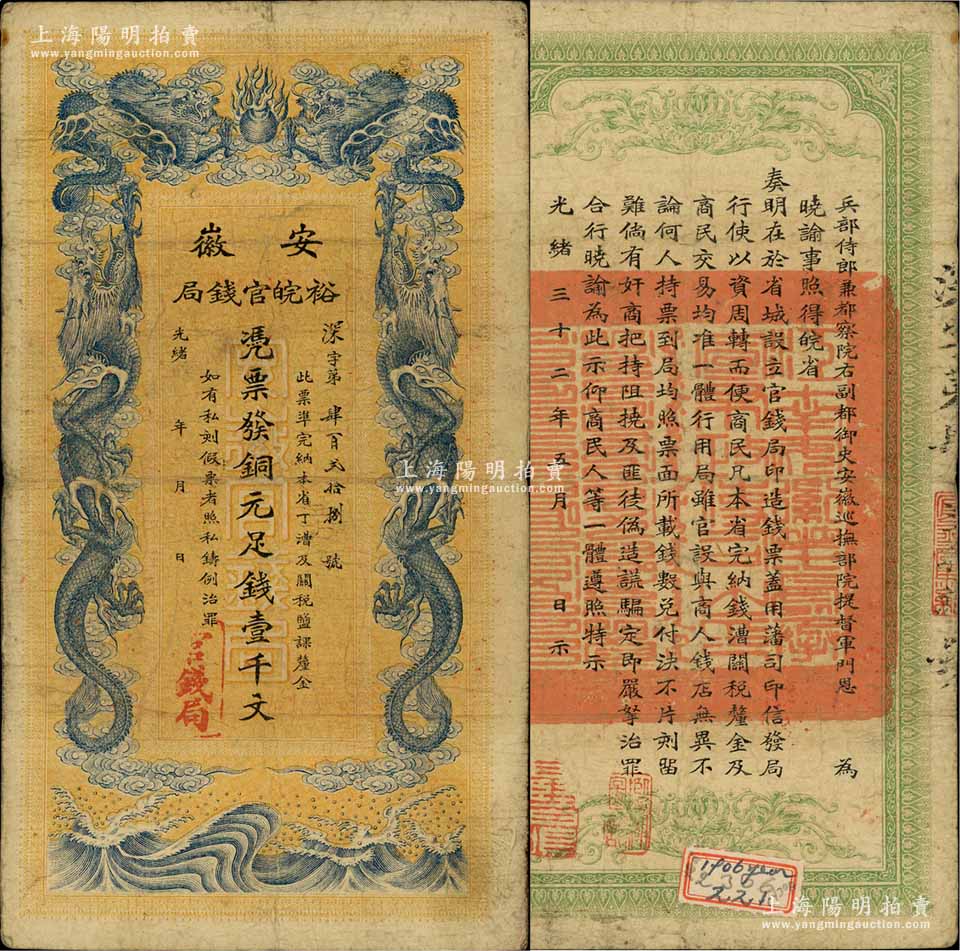 上海陽明拍賣
www.yangmingauction.com
安徽
裕皖官錢局
深字第肆百貳拾捌號
此票準完納本省丁漕及關稅鹽課釐金
憑票發銅元足錢壹千文
如有私刻假票者照私鑄例治罪
光緒 年 月 日
錢局
兵部侍郎兼都察院右副都御史安徽巡撫部院提督軍門恩 為
曉諭事照得皖省
奏明在於省城設立官錢局印造錢票蓋用藩司印信發局
行使以資周轉而便商民凡本省完納錢漕關稅釐金及
商民交易均准一體行用局雖官設與商人錢店無異不
論何人持票到局均照票面所載錢數兌付決不片刻留
難倘有奸商把持阻撓及匪徒偽造謊騙定即嚴拏治罪
合行曉諭為此示仰商民人等一體遵照特示
光緒三十二年五月 日示
1906 year
2.2.1.
上海陽明拍賣
www.yangmingauction.com
上海陽明拍賣
www.yangmingauction.com
上海陽明拍賣
www.yangmingauction.com